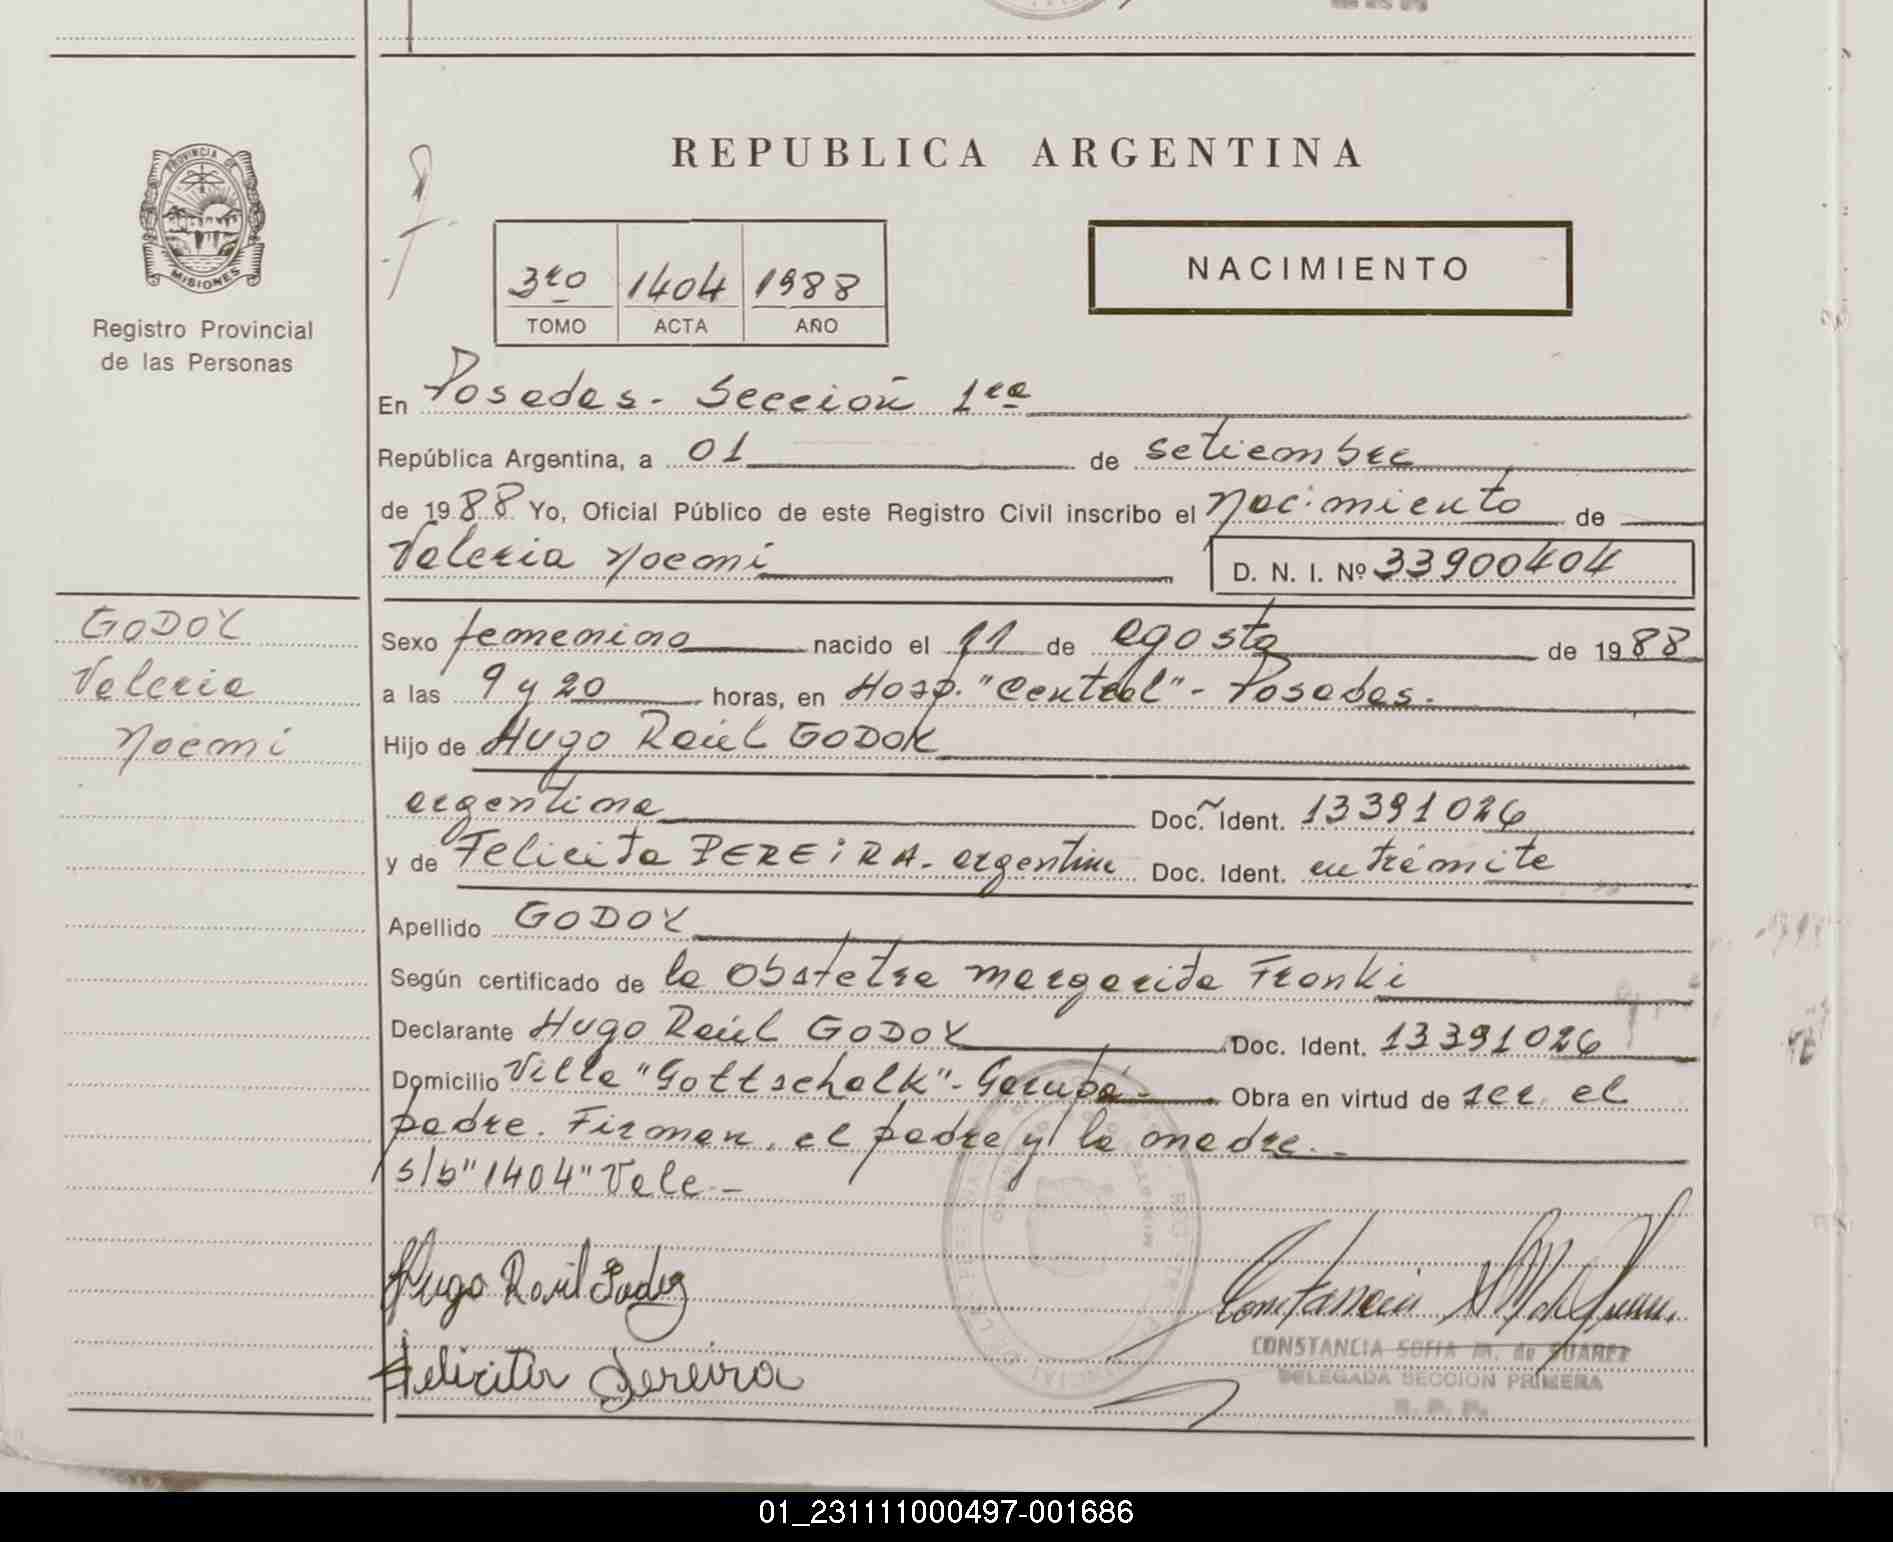 REPUBLICA ARGENTINA
PROVINCIA DE
MISIONES
Registro Provincial
de las Personas
3ro 1404 1988
TOMO ACTA AÑO
NACIMIENTO
En Posadas - Sección 1ra
República Argentina, a 01 de setiembre
de 1988 Yo, Oficial Público de este Registro Civil inscribo el Nacimiento de
Valeria Noemi D. N. I. Nº 33900404
GODOY
Valeria
Noemi
Sexo femenino nacido el 11 de agosto de 1988
a las 9 y 20 horas, en Hosp. "Central" - Posadas.
Hijo de Hugo Raúl GODOY
argentino Doc. Ident. 13391026
y de Felicita PEREIRA - argentina Doc. Ident. en trámite
Apellido GODOY
Según certificado de la Obstetra Margarita Fronki
Declarante Hugo Raúl GODOY Doc. Ident. 13391026
Domicilio Villa "Gottschalk" - Garupá - Obra en virtud de ser el
padre. Firman, el padre y la madre. -
s/b "1404" Vale -
Hugo Raúl Godoy
Felicita Pereira
Constancia
CONSTANCIA SOFIA M. de SUAREZ
DELEGADA SECCION PRIMERA
R. P. P.
01_231111000497-001686